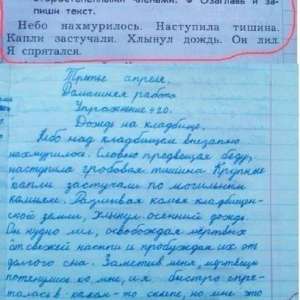 второстепенными членами. Озаглавь и за-
пиши текст.
Небо нахмурилось. Наступила тишина.
Капли застучали. Хлынул дождь. Он лил.
Я спрятался.
Третье апреля.
Домашняя работа
Упражнение 420.
Дождь на кладбище.
Небо над кладбищем внезапно
нахмурилось. Словно предвещая беду,
наступила гробовая тишина. Крупные
капли застучали по могильным
камням. Размывая комья кладбищен-
ской земли, хлынул осенний дождь.
Он нудно лил, освобождая мёртвых
от свежей насыпи и пробуждая их от
долгого сна. Заметив меня, мертвецы
потянулись ко мне, и я быстро спря-
талась в каком-то склепе, но мне это